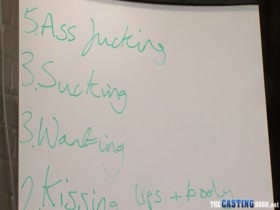 5. Ass fucking
3. Sucking
3. Wanking
Kissing lips + body
THE CASTING ROOM.net